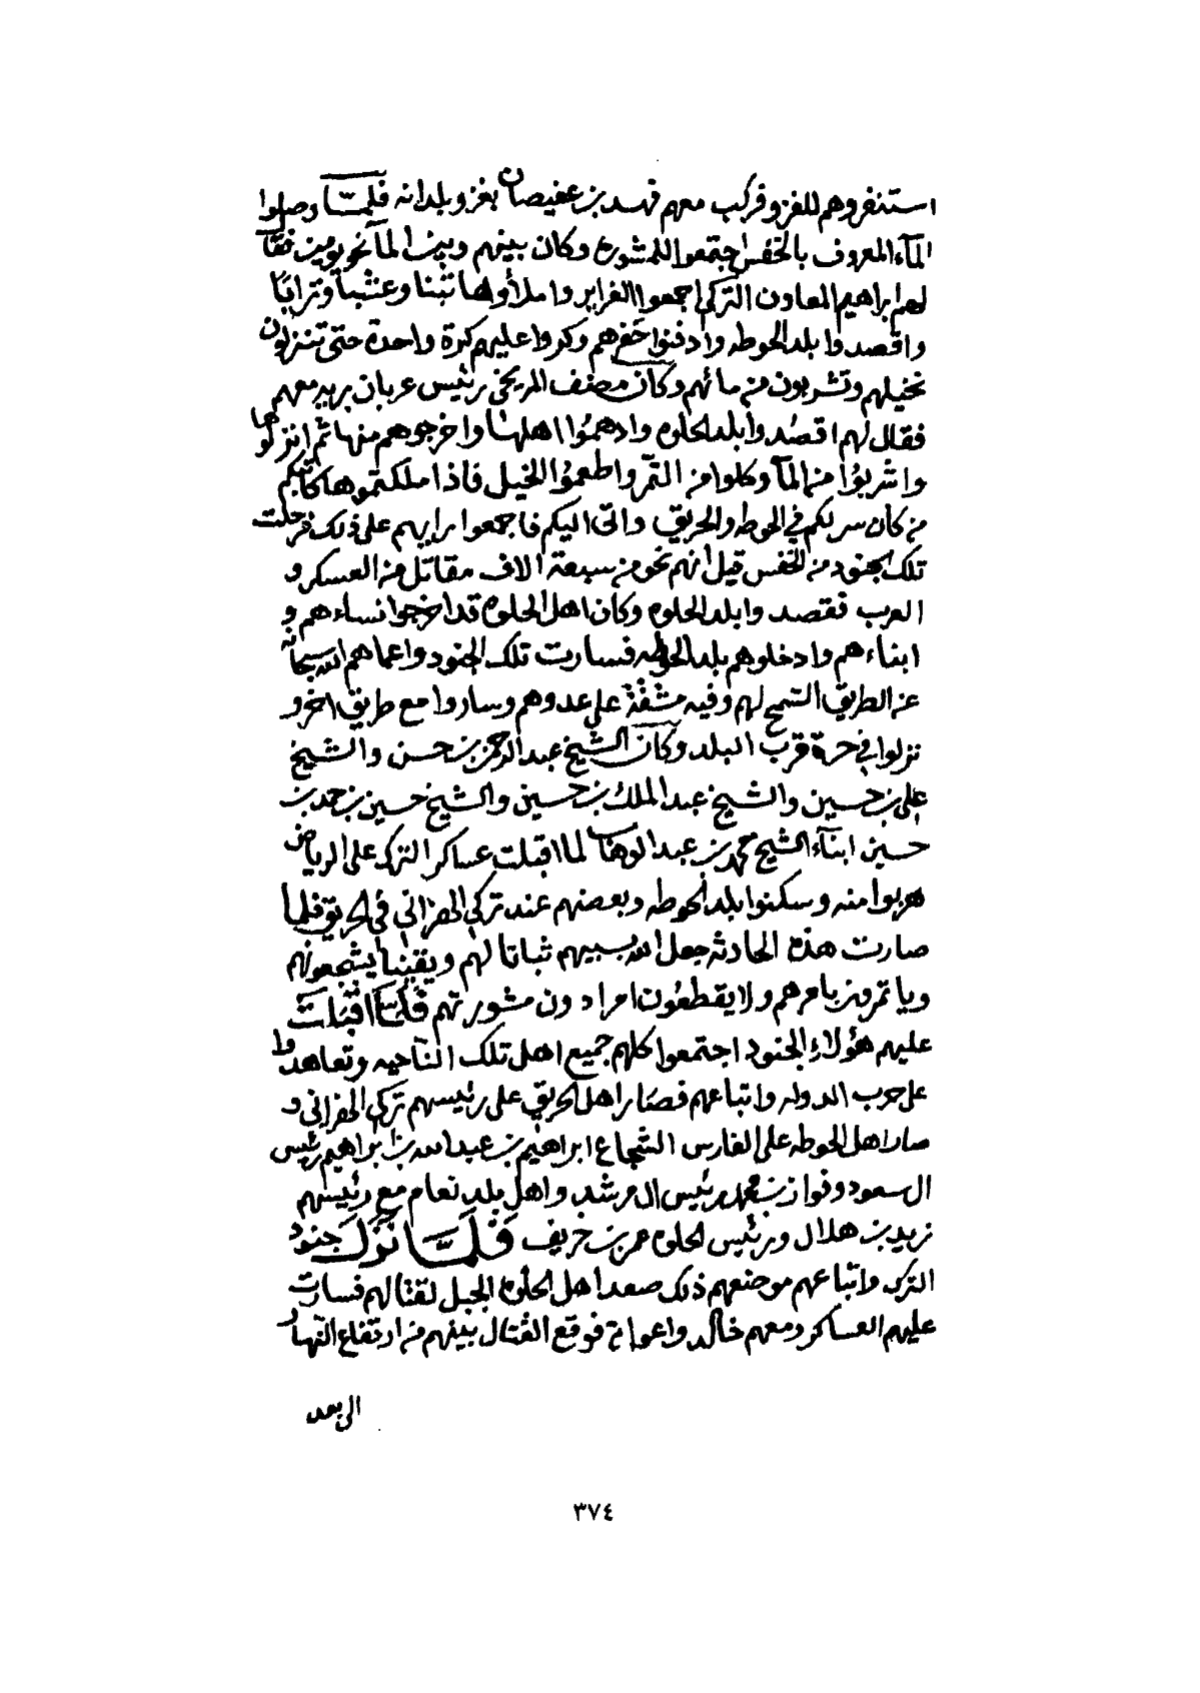 استنفروهم للغزو فركب معهم فهد بن عفيصان بغزو بلدانه فلما وصلوا
المآء المعروف بالخفس اجتمعوا للمشوره وكان بينهم وبين المآ نحو يومين فقال
لهم ابراهيم المعاون التركي اجمعوا الغراير واملأوها تبنا وعشبا وترابًا
واقصدوا بلد الحوطه وادفنوا حفرهم وكروا عليهم كرة واحدة حتى تنزلون
نخيلهم وتشربون من مائهم وكان مصنف المريخي رئيس عربان بريه معهم
فقال لهم اقصُدوا بلد الحلوه وادهمُوا اهلها واخرجوهم منها ثم انزلوها
واشربُوا من المآ وكلوا من التمر واطعمُوا الخيل فاذا ملكتموها كاتبكم
من كان سر لكم في الحوطه والحريق واتى اليكم فاجمعوا رايهم على ذلك فرحلت
تلك الجنود من الخفس قيل انهم نحو من سبعة الاف مقاتل من العسكر و
العرب فقصدوا بلد الحلوه وكان اهل الحلوه قد اخرجوا نساءهم و
ابناءهم وادخلوهم بلد الحوطه فسارت تلك الجنود واعماهم الله سبحانه
عن الطريق السّمح لهم وفيه مشقّة على عدوهم وساروا مع طريق اخر و
نزلوا في حرة قرب البلد وكان الشيخ عبد الرحمن بن حسن والشيخ
علي بن حسين والشيخ عبد الملك بن حسين والشيخ حسين بن حمد بن
حسين ابنآء الشيخ محمد بن عبد الوهاب لما اقبلت عساكر الترك على الرياض
هربوا منه وسكنوا بلد الحوطه وبعضهم عند تركي الهزاني في الحريق فلما
صارت هذه الحادثه جعل الله بسببهم ثباتا لهم ويقينا يشجعونهم
وياتمرون بامرهم ولا يقطعُون امرا دون مشورتهم فلمّا اقبَلت
عليهم هؤلاءِ الجنود اجتمعوا كلهم جميع اهل تلك النّاحيه وتعاهدوا
على حرب الدوله واتباعهم فصَار اهل الحريق على رئيسهم تركي الهزاني و
صار اهل الحوطه على الفارس الشجاع ابراهيم بن عبد الله بن ابراهيم رئيس
ال سعود وفواز بن محمد رئيس ال مرشد واهل بلد نعام مع رئيسهم
زيد بن هلال ورئيس الحلوه محمد بن خريف فَلمَّا نَزَل جنود
الترك واتباعهم موضعهم ذلك صعد اهل الحلوه الجبل لقتالهم فسارت
عليهم العساكر ومعهم خالد واعوانه فوقع القتال بينهم من ارتفاع النّهار
الى بعد
٣٧٤